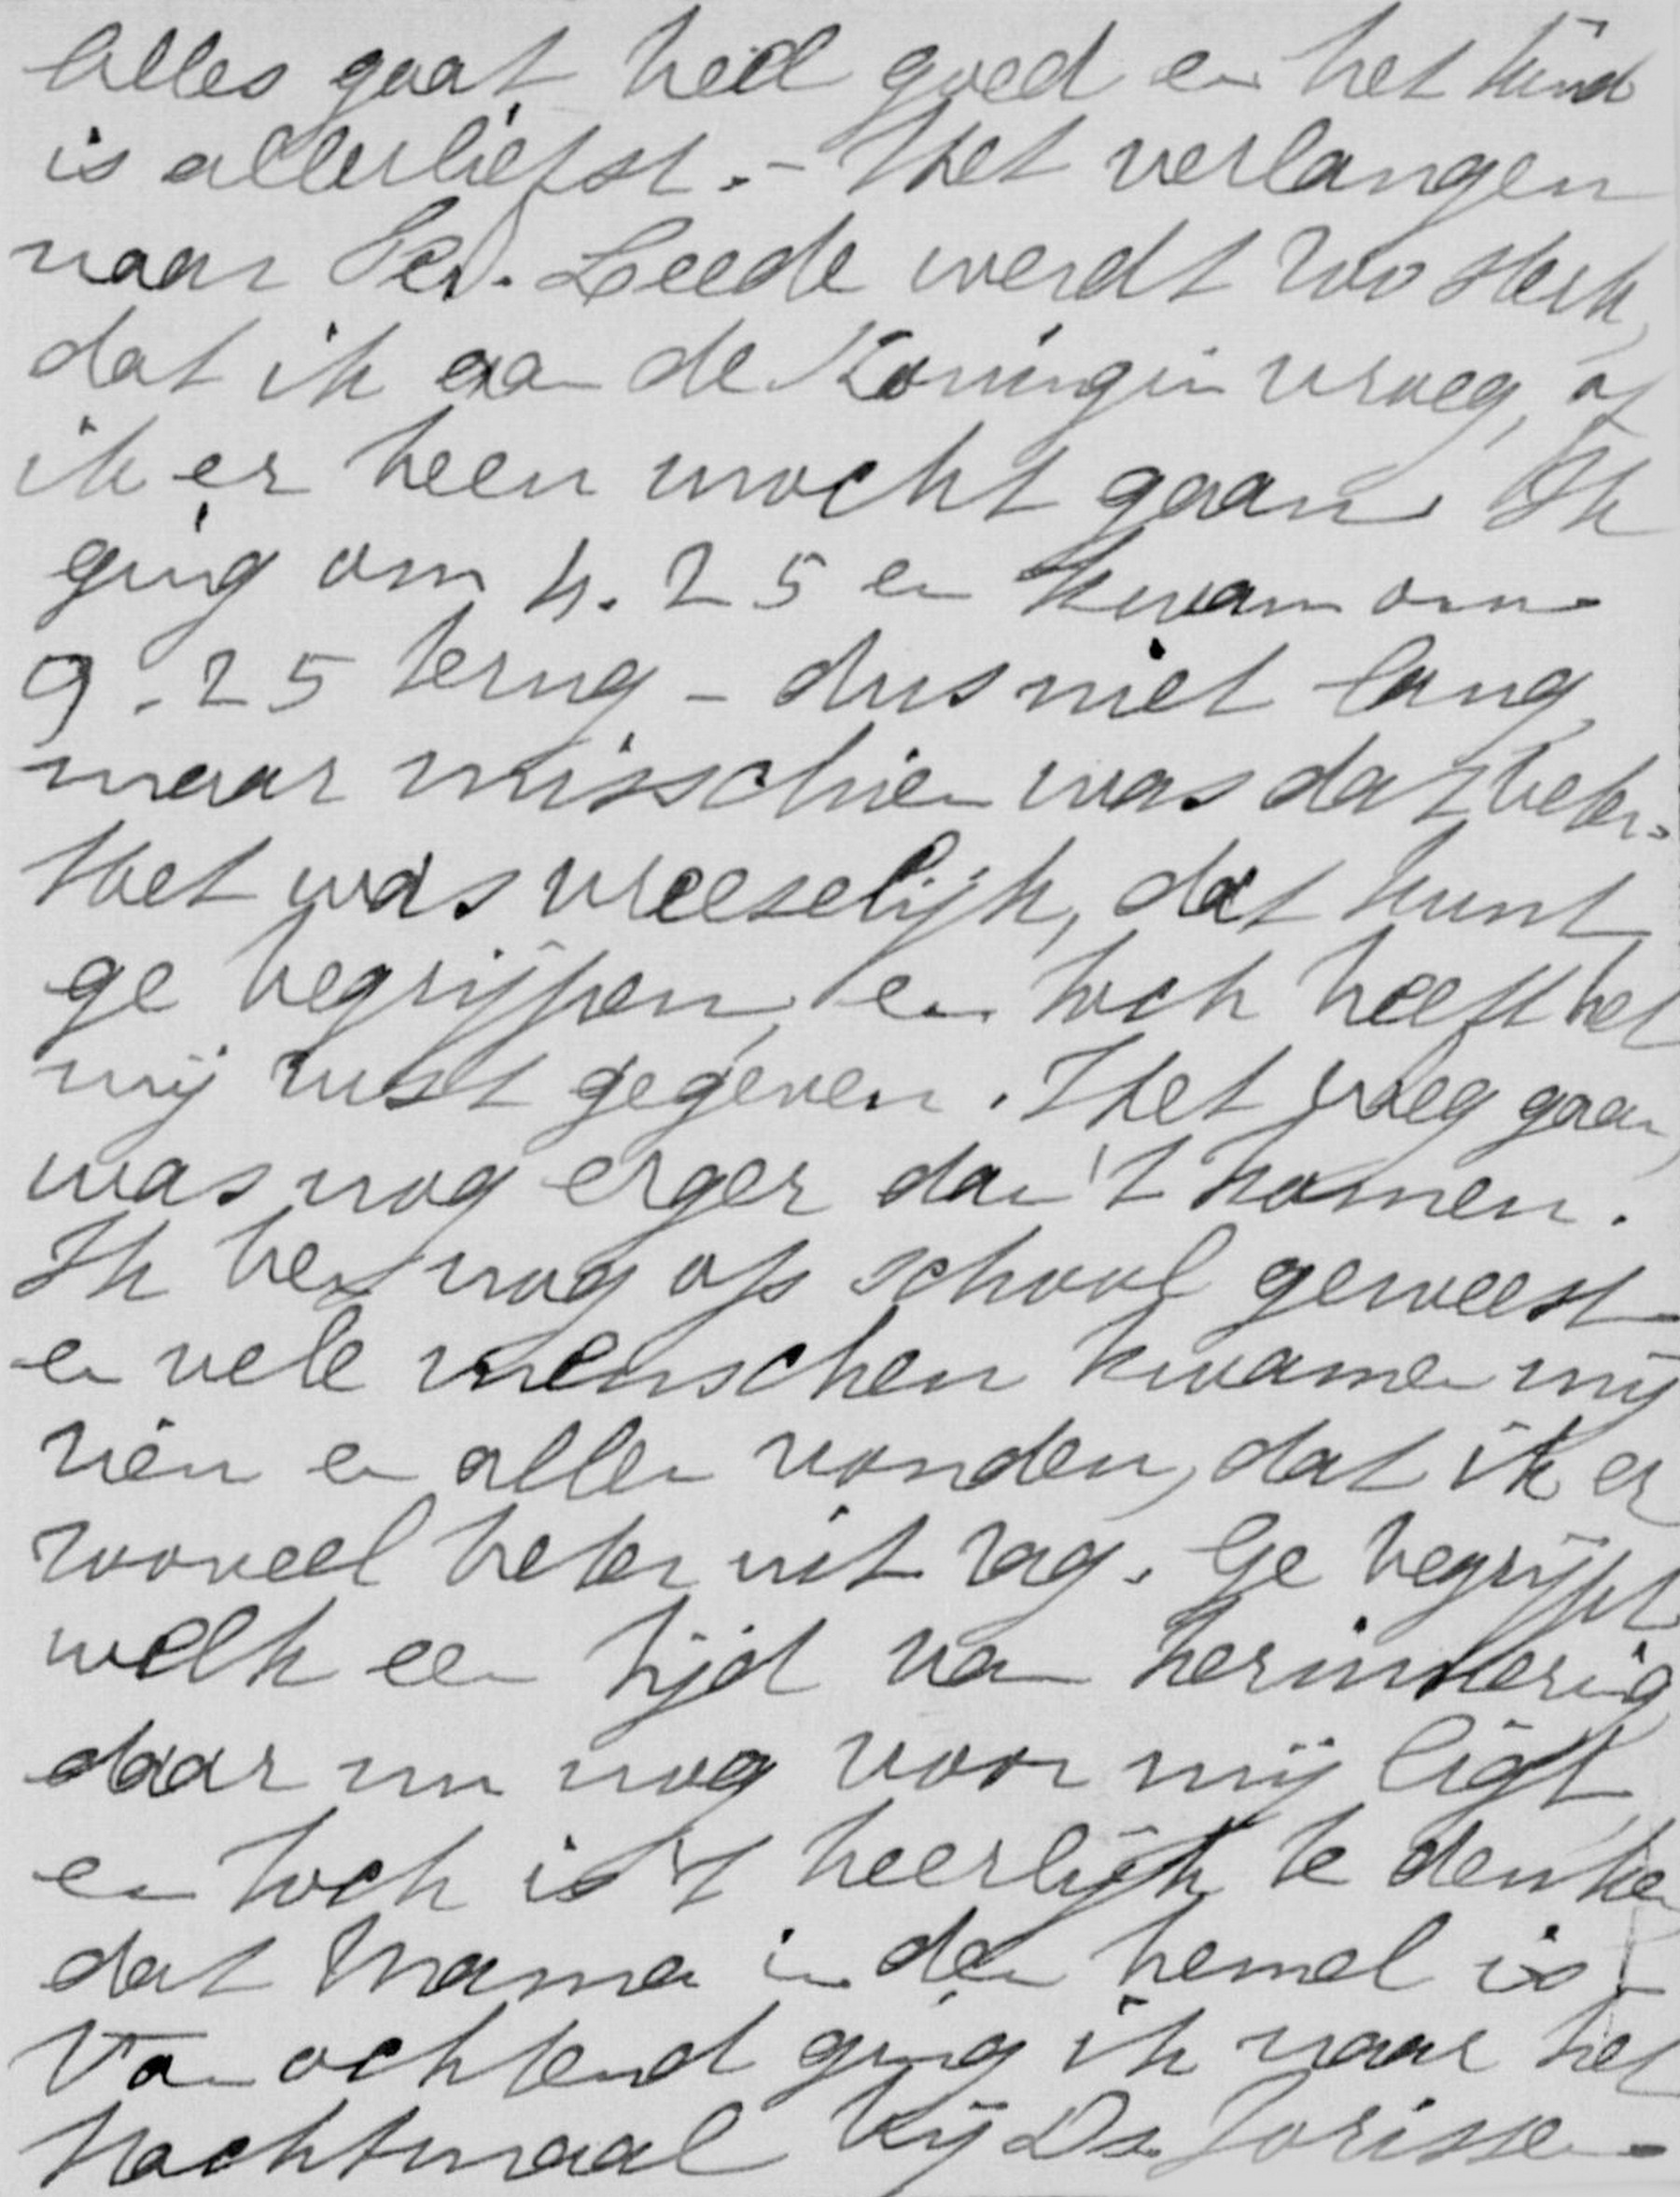 Alles gaat heel goed en het kind
is allerliefst. – Het verlangen
naar Leede werdt zoo sterk,
dat ik aan de Koningin vroeg, of
ik er heen mocht gaan. Ik
ging om 4.25 en kwam om
9.25 terug – dus niet lang,
maar misschien was dat beter.
Het was vreeselijk, dat kunt
ge begrijpen, en toch heeft het
mij rust gegeven. Het weg gaan
was nog erger dan 't komen.
Ik ben nog op school geweest
en vele menschen kwamen mij
zien en allen vonden, dat ik er
zooveel beter uit zag. Ge begrijpt
welk een tijd van herinnering
daar nu nog voor mij ligt,
en toch is 't heerlijk te denken
dat Mama in den hemel is –
Van ochtend ging ik naar het
Nachtmaal bij Ds. Jorissen.